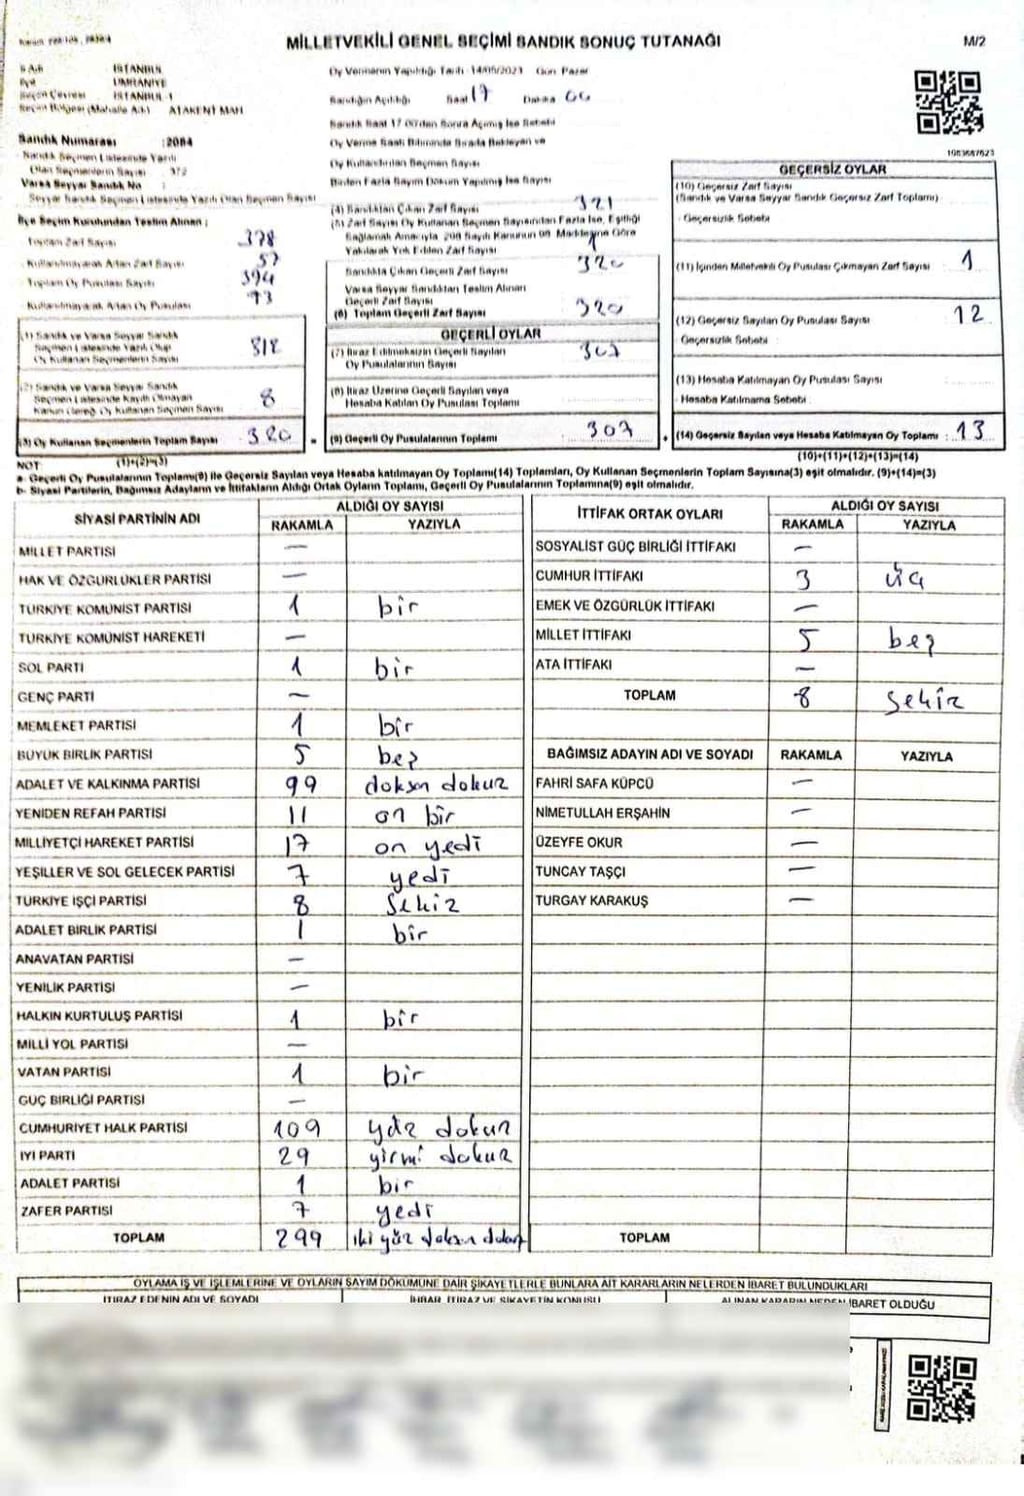 MİLLETVEKİLİ GENEL SEÇİMİ SANDIK SONUÇ TUTANAĞI
M/2
İSTANBUL
İlçe ÜMRANİYE
Seçim Çevresi İSTANBUL-1
Seçim Bölgesi (Mahalle Adı) ATAKENT MAH
Oy Vermenin Yapıldığı Tarih 14/05/2023 Gün Pazar
Sandığın Açıldığı Saat 17 Dakika 00
Sandık Numarası :2084
Sandık Seçmen Listesinde Yazılı
Olan Seçmenlerin Sayısı 372
Varsa Seyyar Sandık No :
Seyyar Sandık Seçmen Listesinde Yazılı Olan Seçmen Sayısı
İlçe Seçim Kurulundan Teslim Alınan :
Toplam Zarf Sayısı 378
Kullanılmayarak Artan Zarf Sayısı 57
Toplam Oy Pusulası Sayısı 394
Kullanılmayarak Artan Oy Pusulası
(1) Sandık ve Varsa Seyyar Sandık
Seçmen Listesinde Yazılı Olup
Oy Kullanan Seçmenlerin Sayısı
(2) Sandık ve Varsa Seyyar Sandık
Seçmen Listesinde Kayıtlı Olmayan
Kanun Gereği Oy Kullanan Seçmen Sayısı 8
(3) Oy Kullanan Seçmenlerin Toplam Sayısı 320
(1)+(2)=(3)
Sandık Saat 17.00'den Sonra Açılmış İse Sebebi
Oy Verme Saati Bitiminde Sırada Bekleyen ve
Oy Kullandırılan Seçmen Sayısı
Birden Fazla Sayım Döküm Yapılmış İse Sayısı
(4) Sandıktan Çıkan Zarf Sayısı 321
(5) Zarf Sayısı Oy Kullanan Seçmen Sayısından Fazla İse, Eşitliği
Sağlamak Amacıyla, 298 Sayılı Kanunun 98. Maddesine Göre
Yakılarak Yok Edilen Zarf Sayısı 1
Sandıkta Çıkan Geçerli Zarf Sayısı 320
Varsa Seyyar Sandıktan Teslim Alınan
Geçerli Zarf Sayısı
(6) Toplam Geçerli Zarf Sayısı 320
GEÇERLİ OYLAR
(7) İtiraz Edilmeksizin Geçerli Sayılan
Oy Pusulalarının Sayısı 307
(8) İtiraz Üzerine Geçerli Sayılan veya
Hesaba Katılan Oy Pusulası Toplamı
(9) Geçerli Oy Pusulalarının Toplamı 307
GEÇERSİZ OYLAR
(10) Geçersiz Zarf Sayısı
(Sandık ve Varsa Seyyar Sandık Geçersiz Zarf Toplamı)
Geçersizlik Sebebi
(11) İçinden Milletvekili Oy Pusulası Çıkmayan Zarf Sayısı 1
(12) Geçersiz Sayılan Oy Pusulası Sayısı 12
Geçersizlik Sebebi
(13) Hesaba Katılmayan Oy Pusulası Sayısı
Hesaba Katılmama Sebebi
(14) Geçersiz Sayılan veya Hesaba Katılmayan Oy Toplamı : 13
(10)+(11)+(12)+(13)=(14)
NOT:
a- Geçerli Oy Pusulalarının Toplamı(9) ile Geçersiz Sayılan veya Hesaba katılmayan Oy Toplamı(14) Toplamları, Oy Kullanan Seçmenlerin Toplam Sayısına(3) eşit olmalıdır. (9)+(14)=(3)
b- Siyasi Partilerin, Bağımsız Adayların ve İttifakların Aldığı Ortak Oyların Toplamı, Geçerli Oy Pusulalarının Toplamına(9) eşit olmalıdır.
SİYASİ PARTİNİN ADI ALDIĞI OY SAYISI
RAKAMLA YAZIYLA
MİLLET PARTİSİ —
HAK VE ÖZGÜRLÜKLER PARTİSİ —
TÜRKİYE KOMÜNİST PARTİSİ 1 bir
TÜRKİYE KOMÜNİST HAREKETİ —
SOL PARTİ 1 bir
GENÇ PARTİ —
MEMLEKET PARTİSİ 1 bir
BÜYÜK BİRLİK PARTİSİ 5 beş
ADALET VE KALKINMA PARTİSİ 99 doksan dokuz
YENİDEN REFAH PARTİSİ 11 on bir
MİLLİYETÇİ HAREKET PARTİSİ 17 on yedi
YEŞİLLER VE SOL GELECEK PARTİSİ 7 yedi
TÜRKİYE İŞÇİ PARTİSİ 8 sekiz
ADALET BİRLİK PARTİSİ 1 bir
ANAVATAN PARTİSİ —
YENİLİK PARTİSİ —
HALKIN KURTULUŞ PARTİSİ 1 bir
MİLLİ YOL PARTİSİ —
VATAN PARTİSİ 1 bir
GÜÇ BİRLİĞİ PARTİSİ —
CUMHURİYET HALK PARTİSİ 109 yüz dokuz
İYİ PARTİ 29 yirmi dokuz
ADALET PARTİSİ 1 bir
ZAFER PARTİSİ 7 yedi
TOPLAM 299 iki yüz doksan dokuz
İTTİFAK ORTAK OYLARI ALDIĞI OY SAYISI
RAKAMLA YAZIYLA
SOSYALİST GÜÇ BİRLİĞİ İTTİFAKI —
CUMHUR İTTİFAKI 3 üç
EMEK VE ÖZGÜRLÜK İTTİFAKI —
MİLLET İTTİFAKI 5 beş
ATA İTTİFAKI —
TOPLAM 8 sekiz
BAĞIMSIZ ADAYIN ADI VE SOYADI RAKAMLA YAZIYLA
FAHRİ SAFA KÜPCÜ —
NİMETULLAH ERŞAHİN —
ÜZEYFE OKUR —
TUNCAY TAŞÇI —
TURGAY KARAKUŞ —
TOPLAM
OYLAMA İŞ VE İŞLEMLERİNE VE OYLARIN SAYIM DÖKÜMÜNE DAİR ŞİKAYETLERLE BUNLARA AİT KARARLARIN NELERDEN İBARET BULUNDUKLARI
İTİRAZ EDENİN ADI VE SOYADI İHBAR, İTİRAZ VE ŞİKAYETİN KONUSU ALINAN KARARIN NEDEN İBARET OLDUĞU